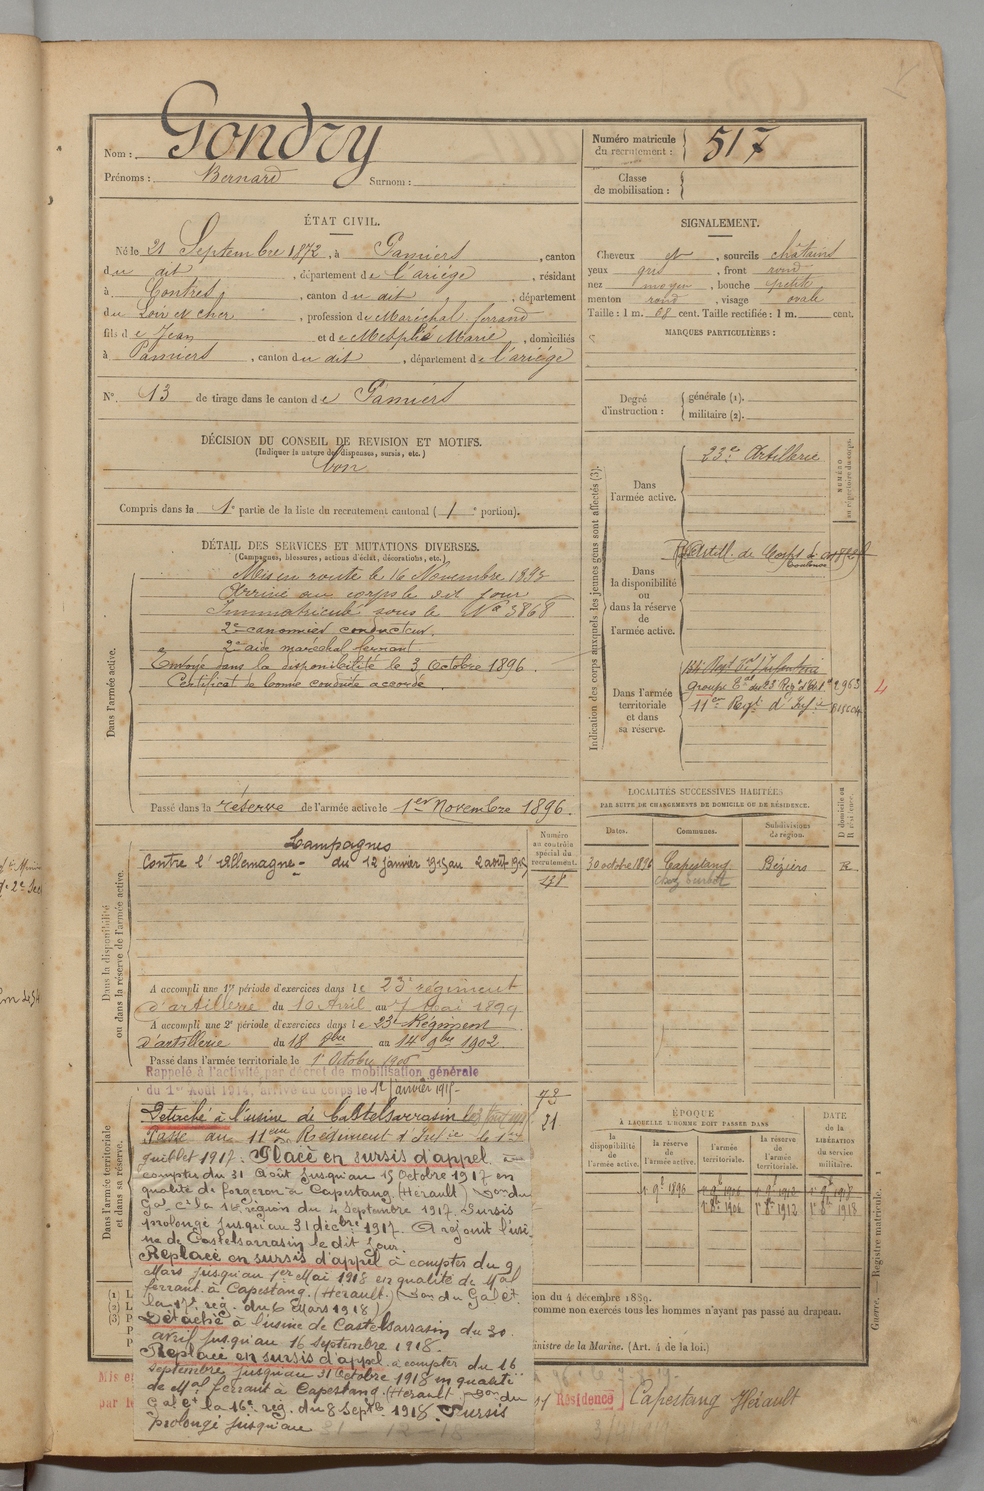 Nom : Gondry
Prénoms : Bernard Surnom :
Numéro matricule du recrutement : 517
Classe de mobilisation :
ÉTAT CIVIL.
Né le 21 Septembre 1872, à Pamiers, canton
du dit, département de l'ariége, résidant
à Contres, canton du dit, département
du Loir et cher, profession de Maréchal-ferrand
fils de Jean et de Marie, domiciliés
à Pamiers, canton du dit, département de l'ariége
N° 13 de tirage dans le canton de Pamiers
SIGNALEMENT.
Cheveux et, sourcils châtains
yeux gris, front rond
nez moyen, bouche petite
menton rond, visage ovale
Taille : 1 m. 68 cent. Taille rectifiée : 1 m. cent.
MARQUES PARTICULIÈRES :
Degré d'instruction : générale (1).
militaire (2).
DÉCISION DU CONSEIL DE REVISION ET MOTIFS.
(Indiquer la nature des dispenses, sursis, etc.)
bon
Compris dans la 1e partie de la liste du recrutement cantonal (1e portion).
DÉTAIL DES SERVICES ET MUTATIONS DIVERSES.
(Campagnes, blessures, actions d'éclat, décorations, etc.)
Dans l'armée active.
Mis en route le 16 Novembre 1893
Arrivé au corps le dit jour
Immatriculé sous le No 3868
2e canonnier conducteur.
2e aide maréchal ferrant
Envoyé dans la disponibilité le 3 Octobre 1896.
Certificat de bonne conduite accordé.
Passé dans la réserve de l'armée active le 1er Novembre 1896.
Indication des corps auxquels les jeunes gens sont affectés (3).
NUMÉRO au répertoire du corps.
Dans l'armée active.
23e Artillerie
Dans la disponibilité ou dans la réserve de l'armée active.
Artill. de Corps à
Toulouse
Dans l'armée territoriale et dans sa réserve.
11e Regt d'Infie
LOCALITÉS SUCCESSIVES HABITÉES
PAR SUITE DE CHANGEMENTS DE DOMICILE OU DE RÉSIDENCE.
D domicile ou R résidence.
Dates. Communes. Subdivisions de région.
30 octobre 1896 Capestang Béziers R
Dans la disponibilité ou dans la réserve de l'armée active.
Numéro au contrôle spécial du recrutement.
Campagnes
Contre l'Allemagne - du 12 janvier 1915 au 2 août 1915
A accompli une 1re période d'exercices dans le 23e régiment
d'artillerie du 10 Avril au 7 Mai 1899
A accompli une 2e période d'exercices dans le 23e Régiment
d'artillerie du 18 8bre au 14 9bre 1902.
Passé dans l'armée territoriale le 1er Octobre 1906
Rappelé à l'activité par décret de mobilisation générale
du 1er Août 1914, arrivé au corps le 12 janvier 1915-
Dans l'armée territoriale et dans sa réserve.
73
21
Détaché à l'usine de Castelsarrasin
Passé au 11eme Régiment d'Infie le 1er
juillet 1917. Placé en sursis d'appel
compter du 31 Août jusqu'au 15 Octobre 1917 en
qualité de forgeron à Capestang (Hérault) Don du
Gal Ct la 16e région du 4 Septembre 1917. Sursis
prolongé jusqu'au 31 décbre 1917. A rejoint l'usi-
ne de Castelsarrasin le dit jour.
Replacé en sursis d'appel à compter du 9
Mars jusqu'au 1er Mai 1918 en qualité de Mal
ferrant à Capestang (Hérault) (Don du Gal Ct
la 17e rég. du 6 Mars 1918)
Détaché à l'usine de Castelsarrasin du 30
avril jusqu'au 16 Septembre 1918.
Replacé en sursis d'appel à compter du 16
Septembre jusqu'au 31 Octobre 1918 en qualité
de Mal ferrant à Capestang (Hérault) Don du
Gal Ct la 16e rég. du 8 Septb 1918. Sursis
prolongé jusqu'au 31-12-18
ÉPOQUE
À LAQUELLE L'HOMME DOIT PASSER DANS
la disponibilité de l'armée active. la réserve de l'armée active. l'armée territoriale. la réserve de l'armée territoriale.
DATE de la LIBÉRATION du service militaire.
1er 9e 1896
1er 8e 1906 1er 8e 1912 1er 8e 1918
ion du 4 décembre 1889.
comme non exercés tous les hommes n'ayant pas passé au drapeau.
inistre de la Marine. (Art. 4 de la loi.)
Guerre. — Registre matricule. 1
Résidence Capestang Hérault